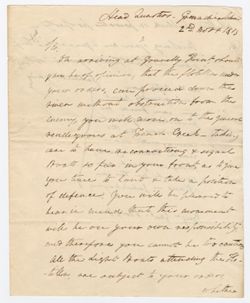 Head Quarters, Grenadier Island
2d Novr 1813
Sir,
On arriving at Gravelly Point should
you be of opinion, that the flotilla under
your orders, can proceed down the
river without obstruction from the
enemy, you will move on to the general
rendezvous at French Creek taking
care to have reconnoitring & signal
Boats so far in your front as to give
you time to land & take a position
of defence. You will be pleased to
bear in mind that this movement
will be on your own responsibility
and therefore you cannot be too cautious
All the Light Boats attending the Flo-
tilla are subject to your orders
whether